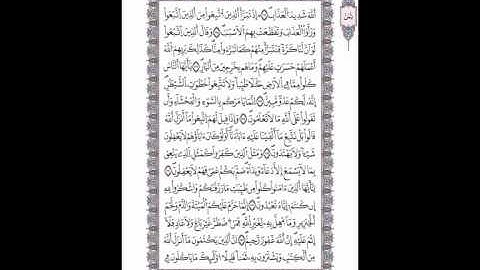 ثمن
اللَّهَ شَدِيدُ الْعَذَابِ إِذْ تَبَرَّأَ الَّذِينَ اتُّبِعُوا مِنَ الَّذِينَ اتَّبَعُوا
وَرَأَوُا الْعَذَابَ وَتَقَطَّعَتْ بِهِمُ الْأَسْبَٰبُ وَقَالَ الَّذِينَ اتَّبَعُوا
لَوَ اَنَّ لَنَا كَرَّةً فَنَتَبَرَّأَ مِنْهُمْ كَمَا تَبَرَّءُوا مِنَّا كَذَٰلِكَ يُرِيهِمُ اللَّهُ
أَعْمَٰلَهُمْ حَسَرَٰتٍ عَلَيْهِمْ وَمَا هُم بِخَٰرِجِينَ مِنَ النَّارِ يَٰأَيُّهَا النَّاسُ
كُلُوا مِمَّا فِي الْأَرْضِ حَلَٰلًا طَيِّبًا وَلَا تَتَّبِعُوا خُطُوَٰتِ الشَّيْطَٰنِ
إِنَّهُ لَكُمْ عَدُوٌّ مُّبِينٌ إِنَّمَا يَأْمُرُكُم بِالسُّوءِ وَالْفَحْشَاءِ وَأَن
تَقُولُوا عَلَى اللَّهِ مَا لَا تَعْلَمُونَ وَإِذَا قِيلَ لَهُمُ اتَّبِعُوا مَا أَنزَلَ اللَّهُ
قَالُوا بَلْ نَتَّبِعُ مَا أَلْفَيْنَا عَلَيْهِ ءَابَاءَنَا أَوَلَوْ كَانَ ءَابَاؤُهُمْ لَا يَعْقِلُونَ
شَيْئًا وَلَا يَهْتَدُونَ وَمَثَلُ الَّذِينَ كَفَرُوا كَمَثَلِ الَّذِي يَنْعِقُ
بِمَا لَا يَسْمَعُ إِلَّا دُعَاءً وَنِدَاءً صُمٌّ بُكْمٌ عُمْيٌ فَهُمْ لَا يَعْقِلُونَ
يَٰأَيُّهَا الَّذِينَ ءَامَنُوا كُلُوا مِن طَيِّبَٰتِ مَا رَزَقْنَٰكُمْ وَاشْكُرُوا لِلَّهِ
إِن كُنتُمْ إِيَّاهُ تَعْبُدُونَ إِنَّمَا حَرَّمَ عَلَيْكُمُ الْمَيْتَةَ وَالدَّمَ وَلَحْمَ
الْخِنزِيرِ وَمَا أُهِلَّ بِهِ لِغَيْرِ اللَّهِ فَمَنُ اضْطُرَّ غَيْرَ بَاغٍ وَلَا عَادٍ فَلَا
إِثْمَ عَلَيْهِ إِنَّ اللَّهَ غَفُورٌ رَّحِيمٌ إِنَّ الَّذِينَ يَكْتُمُونَ مَا أَنزَلَ اللَّهُ
مِنَ الْكِتَٰبِ وَيَشْتَرُونَ بِهِ ثَمَنًا قَلِيلًا أُولَٰئِكَ مَا يَأْكُلُونَ فِي